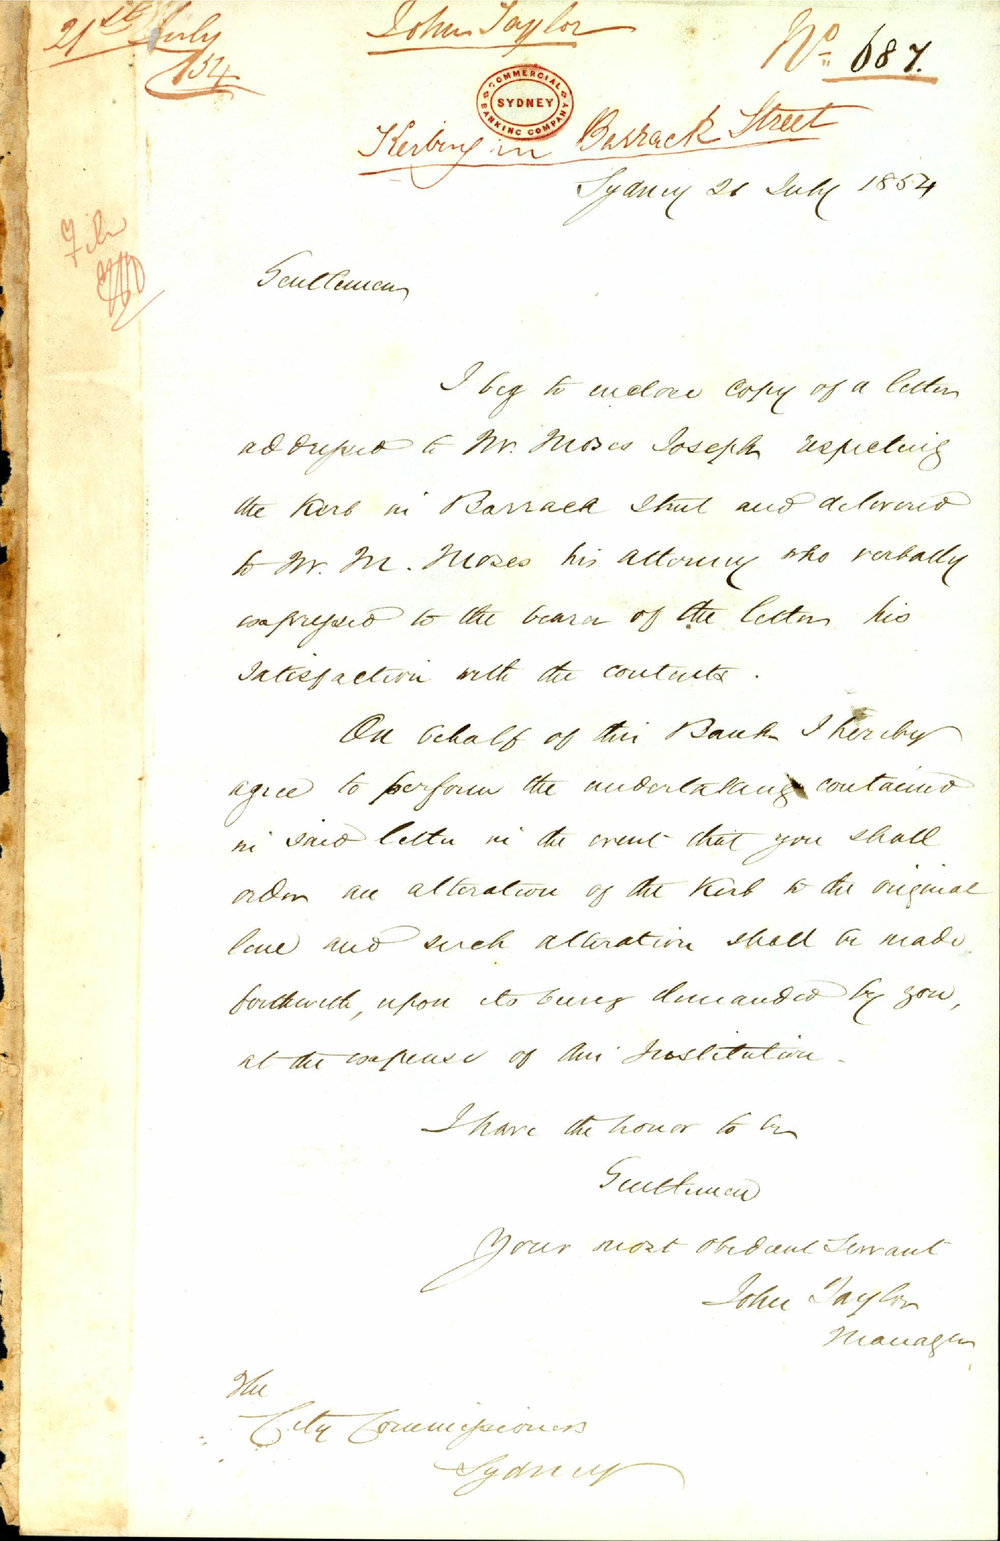 21st July
/54
John Taylor
No 687.
COMMERCIAL BANKING COMPANY
SYDNEY
Kerbing in Barrack Street
Sydney 21 July 1854
File
Gentlemen
I beg to enclose copy of a letter
addressed to Mr. Moses Joseph respecting
the Kerb in Barrack Street and delivered
to Mr. M. Moses his attorney who verbally
expressed to the bearer of the letter his
satisfaction with the contents.
On behalf of this Bank I hereby
agree to perform the undertaking contained
in said letter in the event that you shall
order an alteration of the Kerb to the original
line and such alteration shall be made
forthwith, upon its being demanded by you,
at the expense of this Institution.
I have the honor to be
Gentlemen
Your most obedient Servant
John Taylor
Manager
The
City Commissioners
Sydney